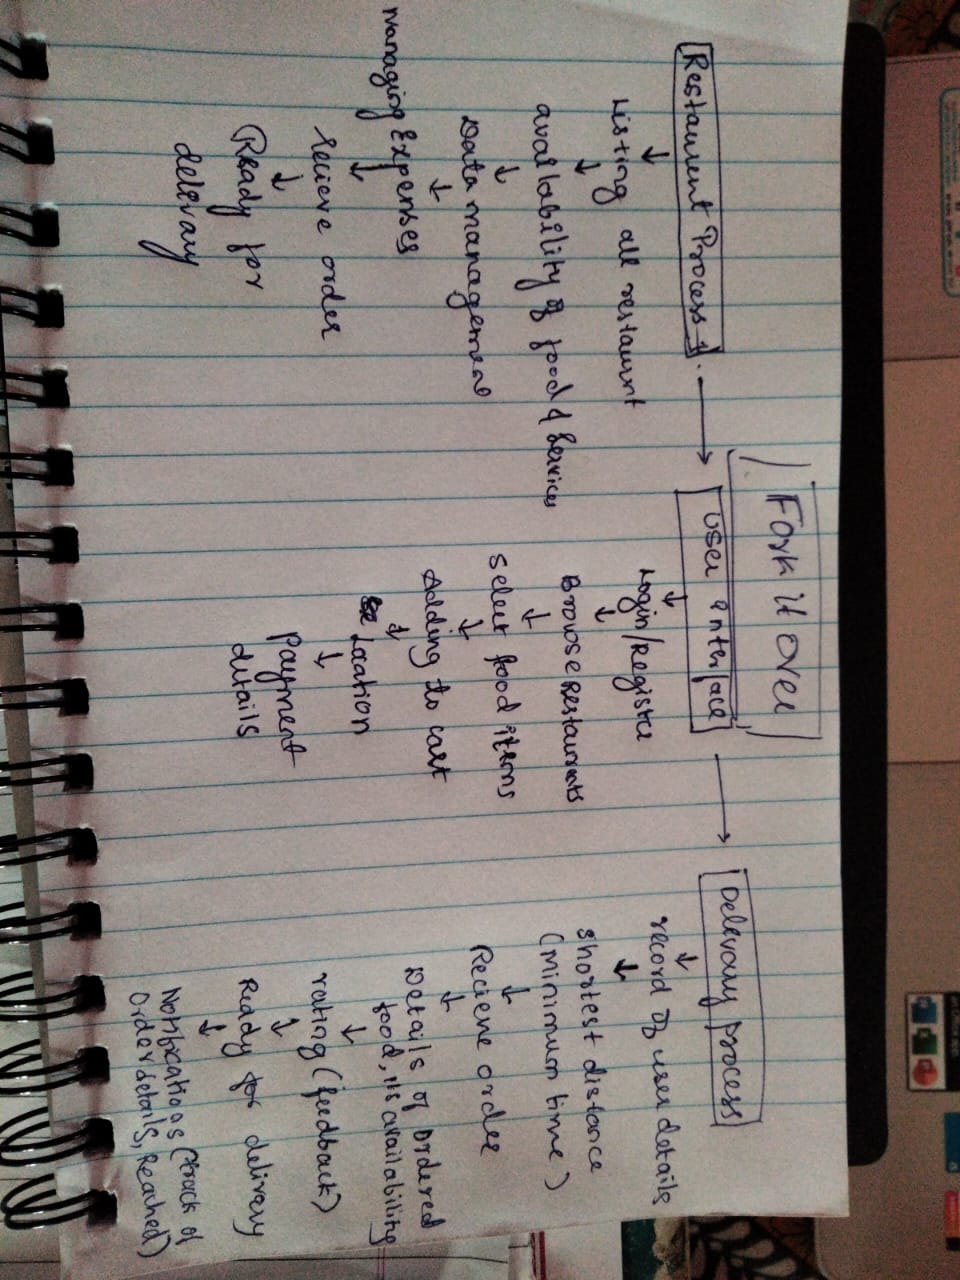 Fork it over
Restaurent Process
Listing all restaurnt
availability of food & Services
Data management
Managing Expenses
recieve order
Ready for
delevary
User interface
Login/Register
Browse Restaurnts
Select food items
Adding to cart
Location
Payment
details
Delevary process
record of user details
Shortest distance
(Minimum time)
Recieve order
Details of ordered
food, its availability
rating (feedback)
Ready for delivery
Notifications (track of
Order details, Reached)